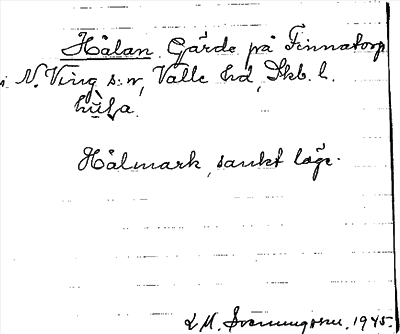 Hålan Gärde på Finnatorp
i N. Ving s:n, Valle hd, Skb. l.
Hålmark, sankt läge.
L M. Svenungsson. 1945.